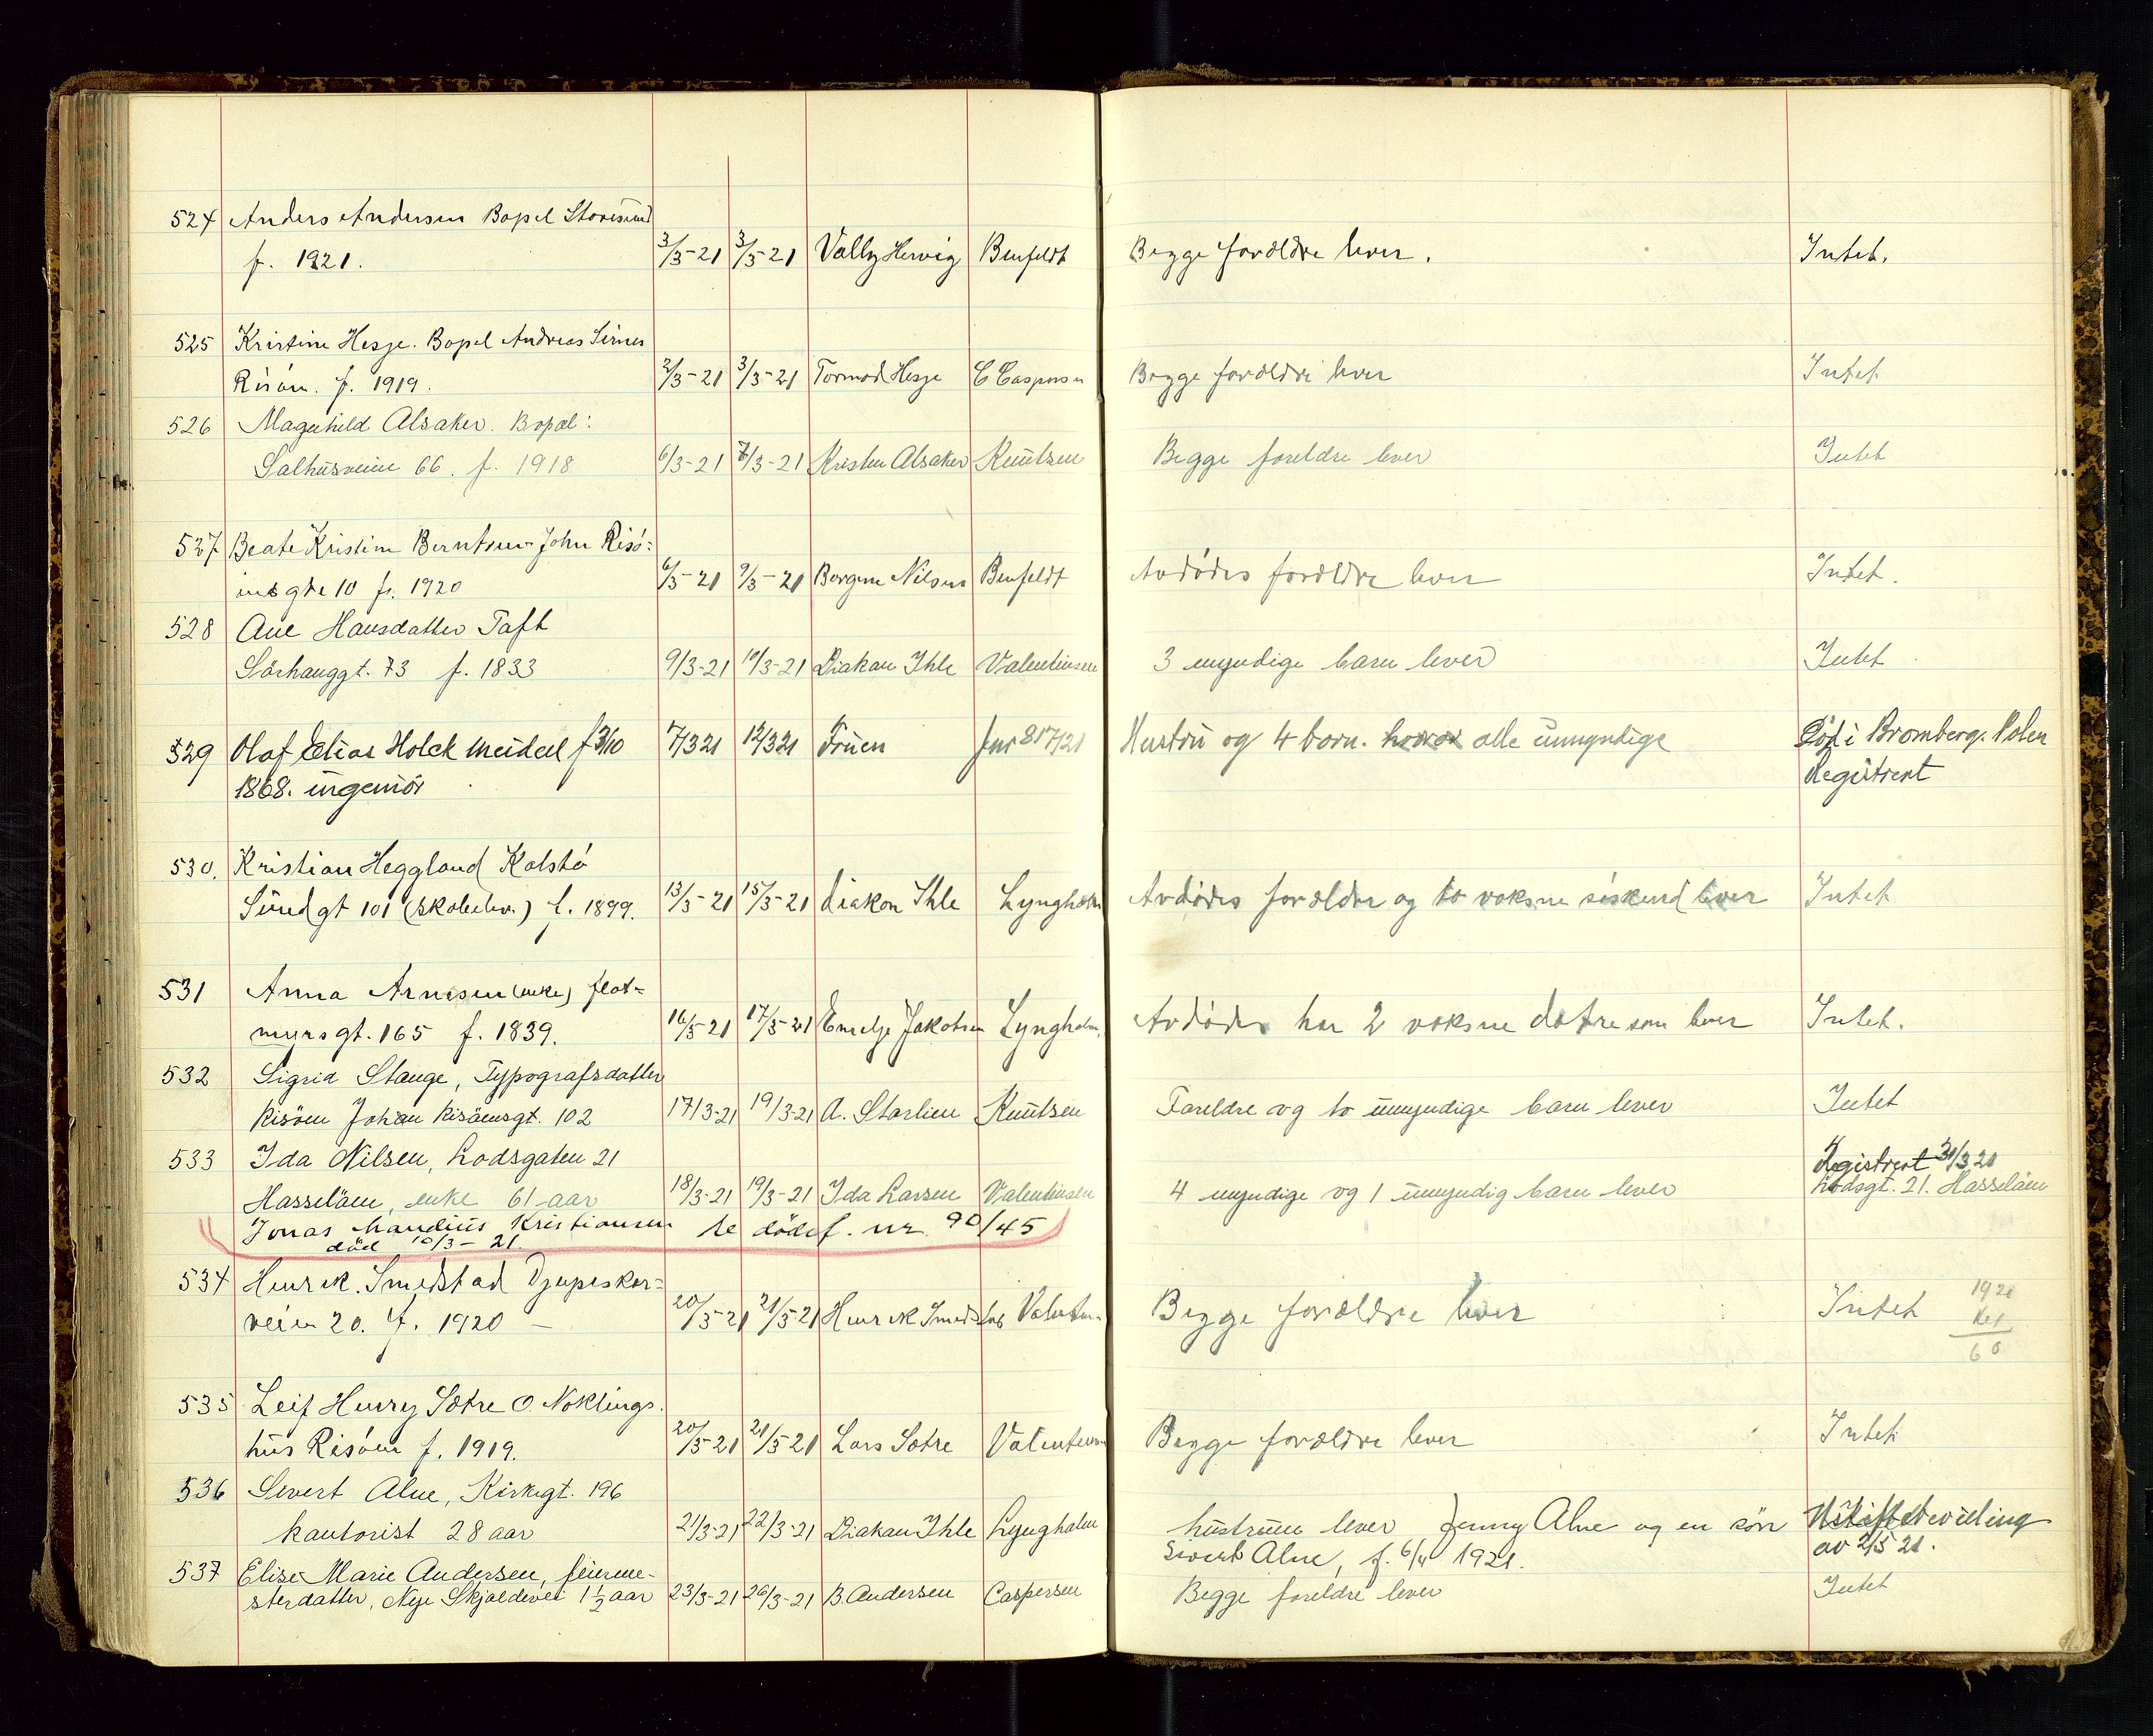 524 Anders Andersen Bopel Storesund
f. 1921. 3/3-21 3/3-21 Vally Hervig Benfeldt Begge forældre lever. Intet.
525 Kristine Hesje. Bopel Andreas Simes
Risöen. f. 1919. 2/3-21 3/3-21 Tormod Hesje C Caspersen Begge forældre lever Intet
526 Magnhild Alsaker. Bopæl:
Salhusveien 66. f. 1918 6/3-21 7/3-21 Kristen Alsaker Knutsen Begge foreldre lever Intet
527 Beate Kristine Berntsen John Risö=
ens gte 10 f. 1920 6/3-21 9/3-21 Borgine Nilsen Benfeldt Avdödes forældre lever Intet.
528 Ane Hansdatter Taft
Sörhauggt. 73 f. 1833 9/3-21 10/3-21 Diakon Ihle Valentinsen 3 myndige barn lever Intet
529 Olaf Elias Holck Meidell f 3/10 7/3 21 12/3 21 Fruen Jnr 817/21 Hustru og 4 born. alle umyndige Död i Bromberg. Polen
1868. ingeniör Registrert
530. Kristian Heggland Kolstö
Sundgt 101 (skoleelev.) f. 1899. 13/3-21 15/3-21 diakon Ihle Lyngholm Avdödes forældre og to voksne söskend lever Intet
531 Anna Arnesen (enke) flot=
myrsgt. 165 f. 1839. 16/3-21 17/3-21 Emelje Jakobsen Lyngholm. Avdöde har 2 voksne døtre som lever Intet.
532 Sigrid Stange, Typografsdatter
Risöen Johan Risöensgt. 102 17/3-21 19/3-21 A. Starlien Knutsen Foreldre og to umyndige barn lever Intet
533 Ida Nilsen, Lodsgaten 21 Registrert 31/3 21
Hasselöen, enke 61 aar 18/3-21 19/3-21 Ida Larsen Valentinsen 4 myndige og 1 umyndig barn lever Lodsgt. 21. Hasselöen
Jonas Mandius Kristiansen se dödsf. nr. 90/45
död 10/3-21.
534 Henrik Smedstad Djupaskar=
veien 20. f. 1920 - 20/3-21 21/3-21 Henrik Smedstad Valentin. Begge forældre lever Intet 1920
60
535 Leif Henry Sætre O. Noklings.
hus Risöen f. 1919. 20/3-21 21/3-21 Lars Sætre Valentinsen Begge forældre lever Intet
536 Severt Alne, Kirkegt. 196
kontorist 28 aar 21/3-21 22/3-21 Diakon Ihle Lyngholm hustruen lever Jenny Alne og en sön Uskiftebevilling
Sivert Alne, f. 6/4 1921. av 2/5 21.
537 Elise Marie Andersen, feierme-
sterdatter, Nye Skjoldevei 1 1/2 aar 23/3-21 26/3-21 B. Andersen Caspersen Begge foreldre lever Intet